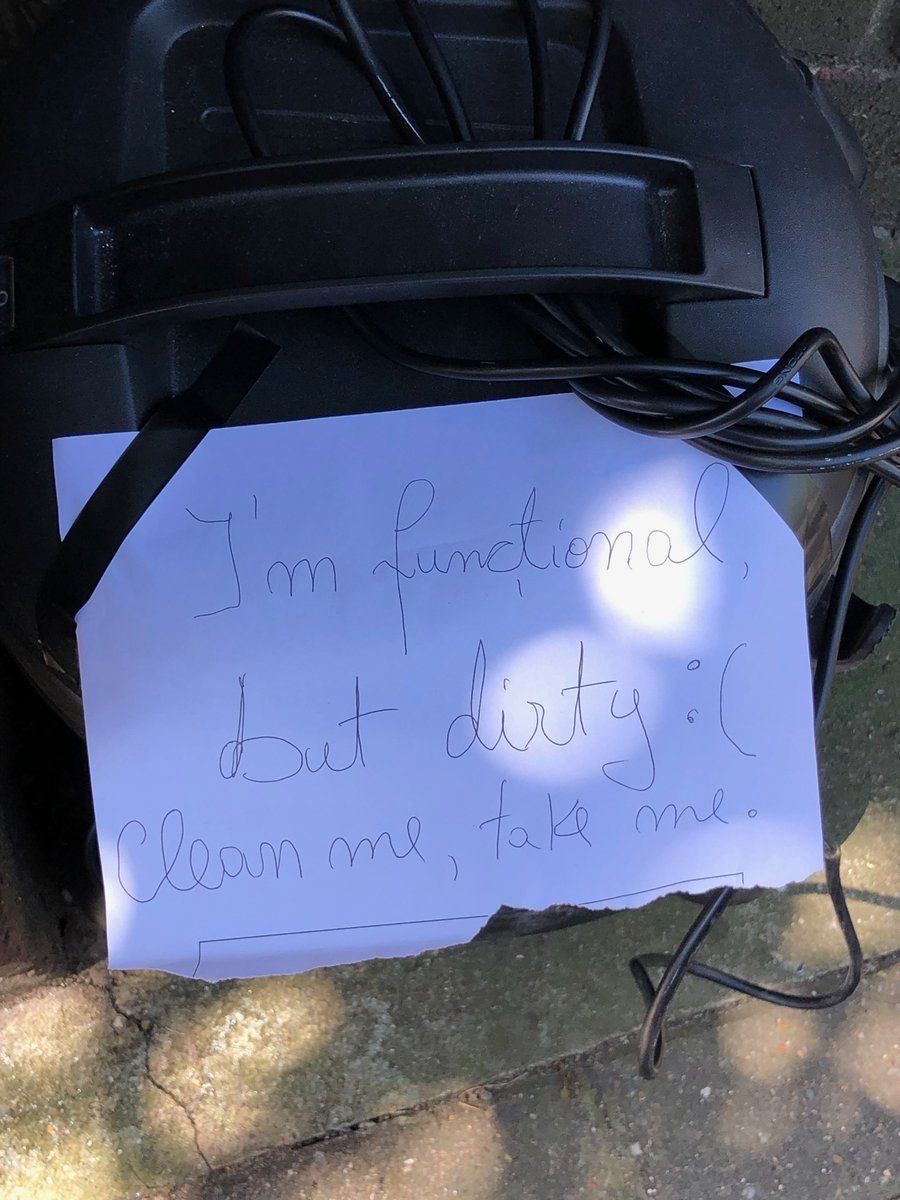 I'm functional,
but dirty :(
Clean me, take me.